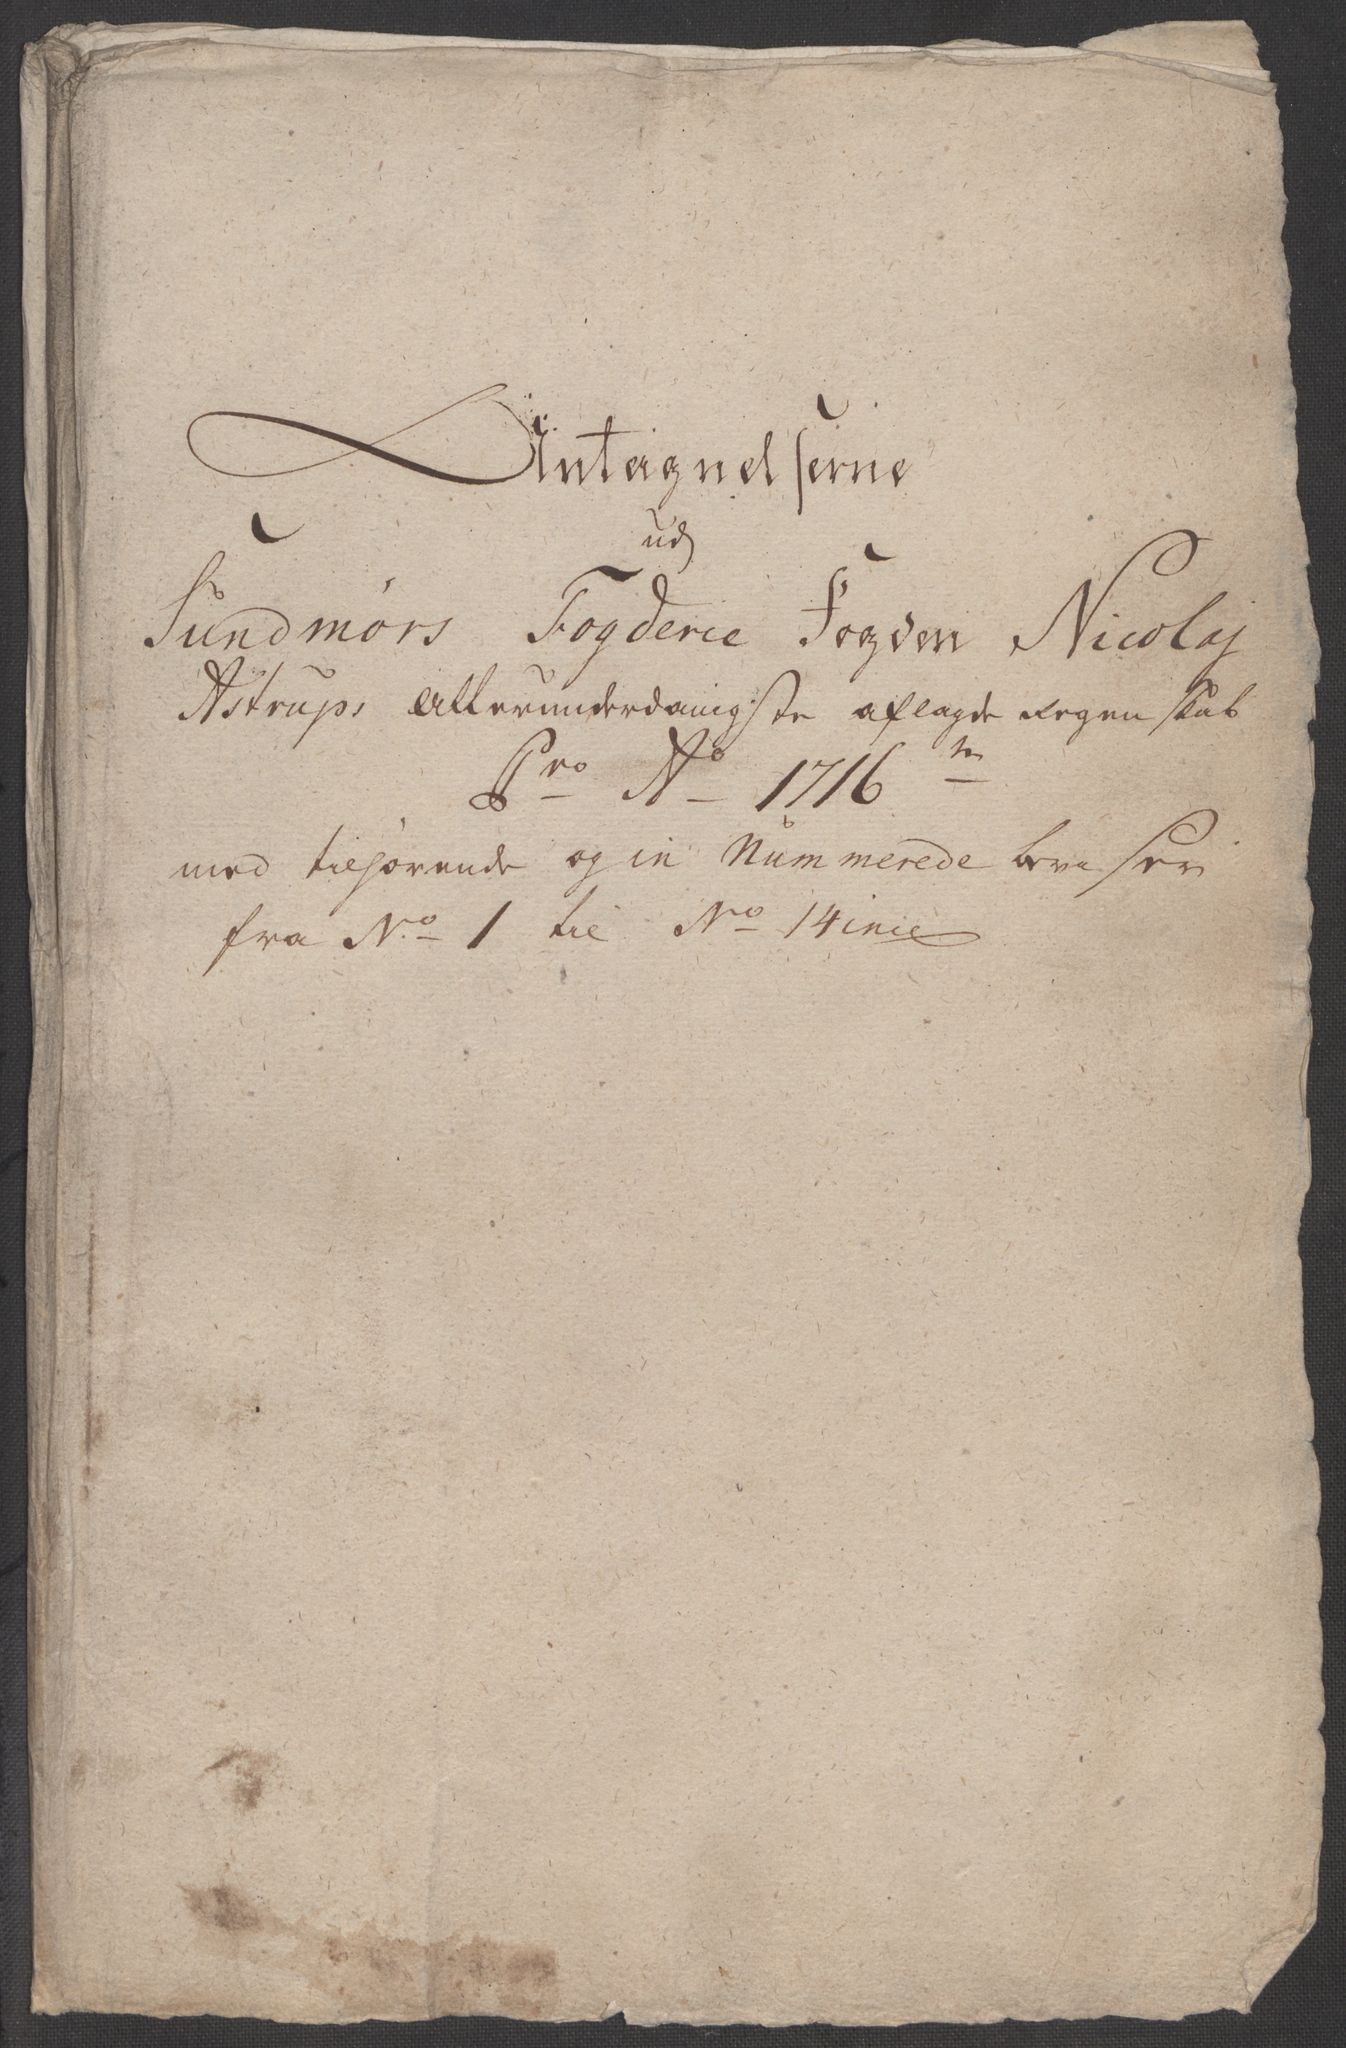 Antagnelserne
ud
Sundmørs Fogderie Fogden Nicolaj
Astrups allerunderdanigste aflagde regenskab
Pro Ao 1716
med tilhørende og in Nummerede beviser
fra No 1 til No 14 incl